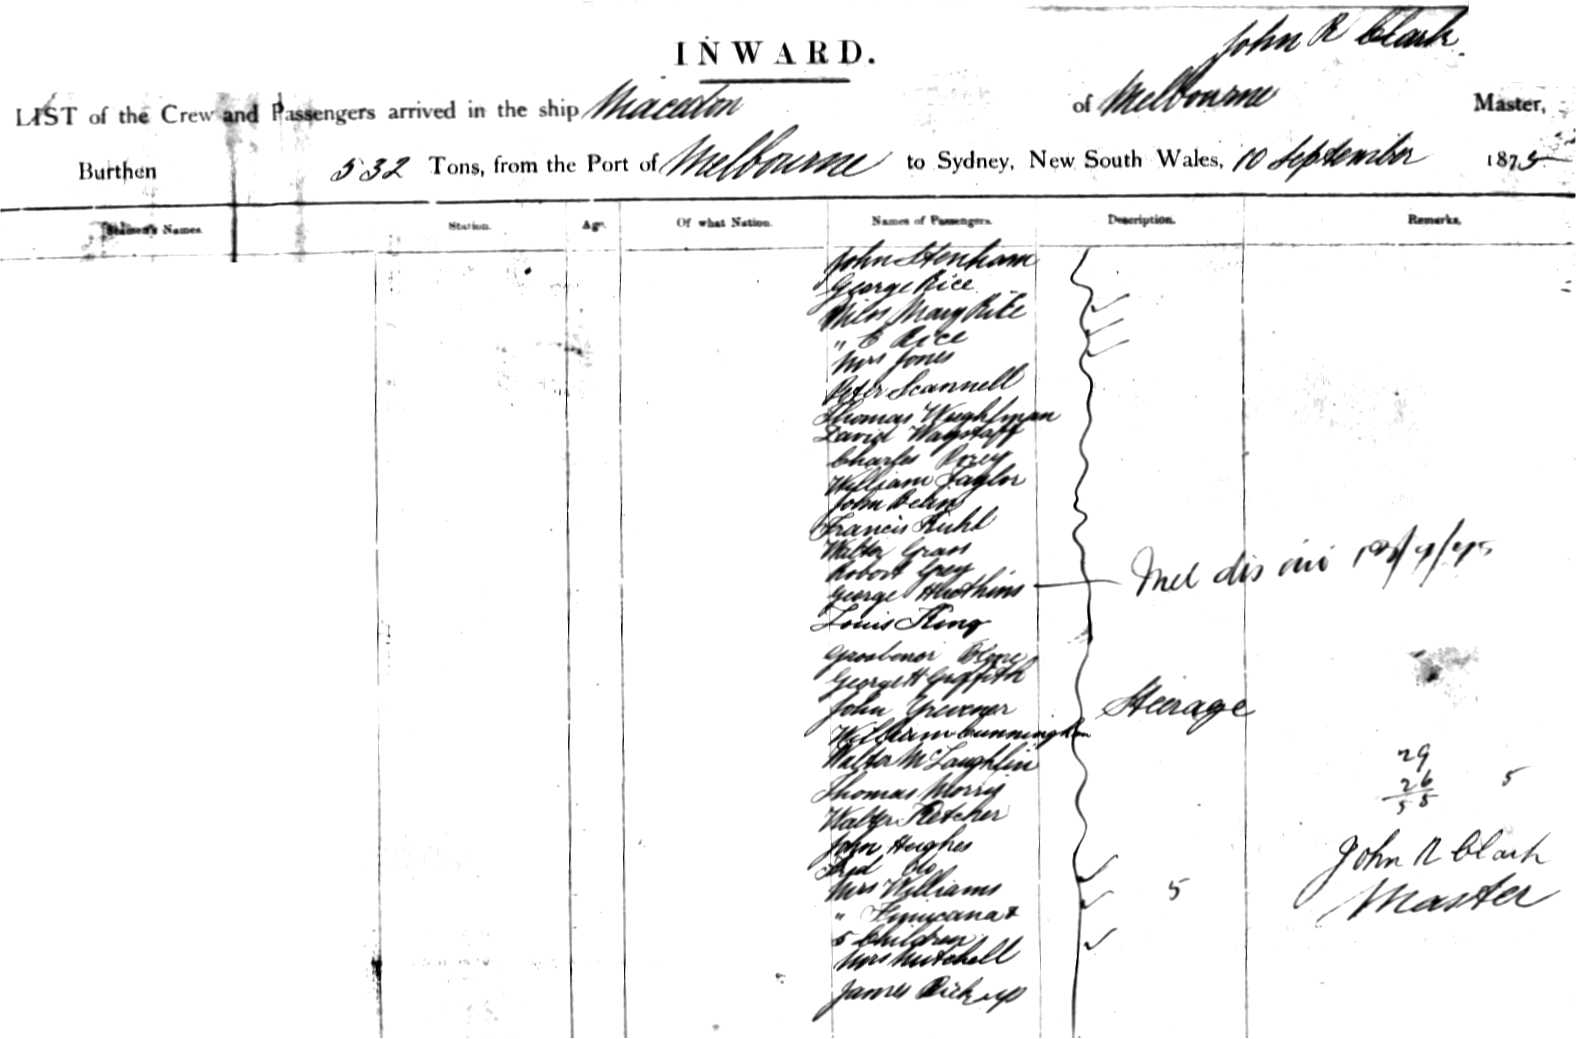 INWARD.
John R Clark
LIST of the Crew and Passengers arrived in the ship Macedon of Melbourne Master,
Burthen 532 Tons, from the Port of Melbourne to Sydney, New South Wales, 10 September 1875
Seamen's Names. Station. Age. Of what Nation. Names of Passengers. Description. Remarks.
John Stenham
George Rice
Miss Mary Rice
" E Rice
Mrs Jones
Peter Scannell
Thomas Weightman
David Wagstaff
Charles
William Taylor
John
Francis
Walter Grass
Robert Grey
George Hutchins
Louis King
George H Griffith
John
Steerage
William Cunningham
Walter McLaughlin
Thomas Morris
Walter Fletcher
John Hughes
Fred
Mrs Williams
" &
5 Children
Mrs Mitchell
James Pickup
5
29
26 5
55
John R Clark
Master